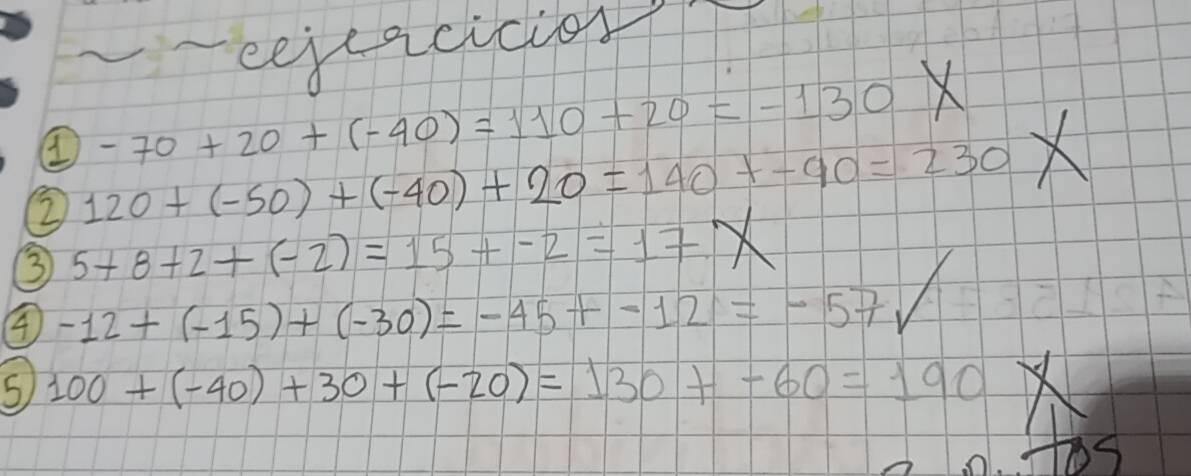 ejercicios
1 -70 + 20 + (-40) = 110 + 20 = -130 X
2 120 + (-50) + (-40) + 20 = 140 + -90 = 230 X
3 5 + 8 + 2 + (-2) = 15 + -2 = 17 X
4 -12 + (-15) + (-30) = -45 + -12 = -57 ✓
5 100 + (-40) + 30 + (-20) = 130 + -60 = 190 X